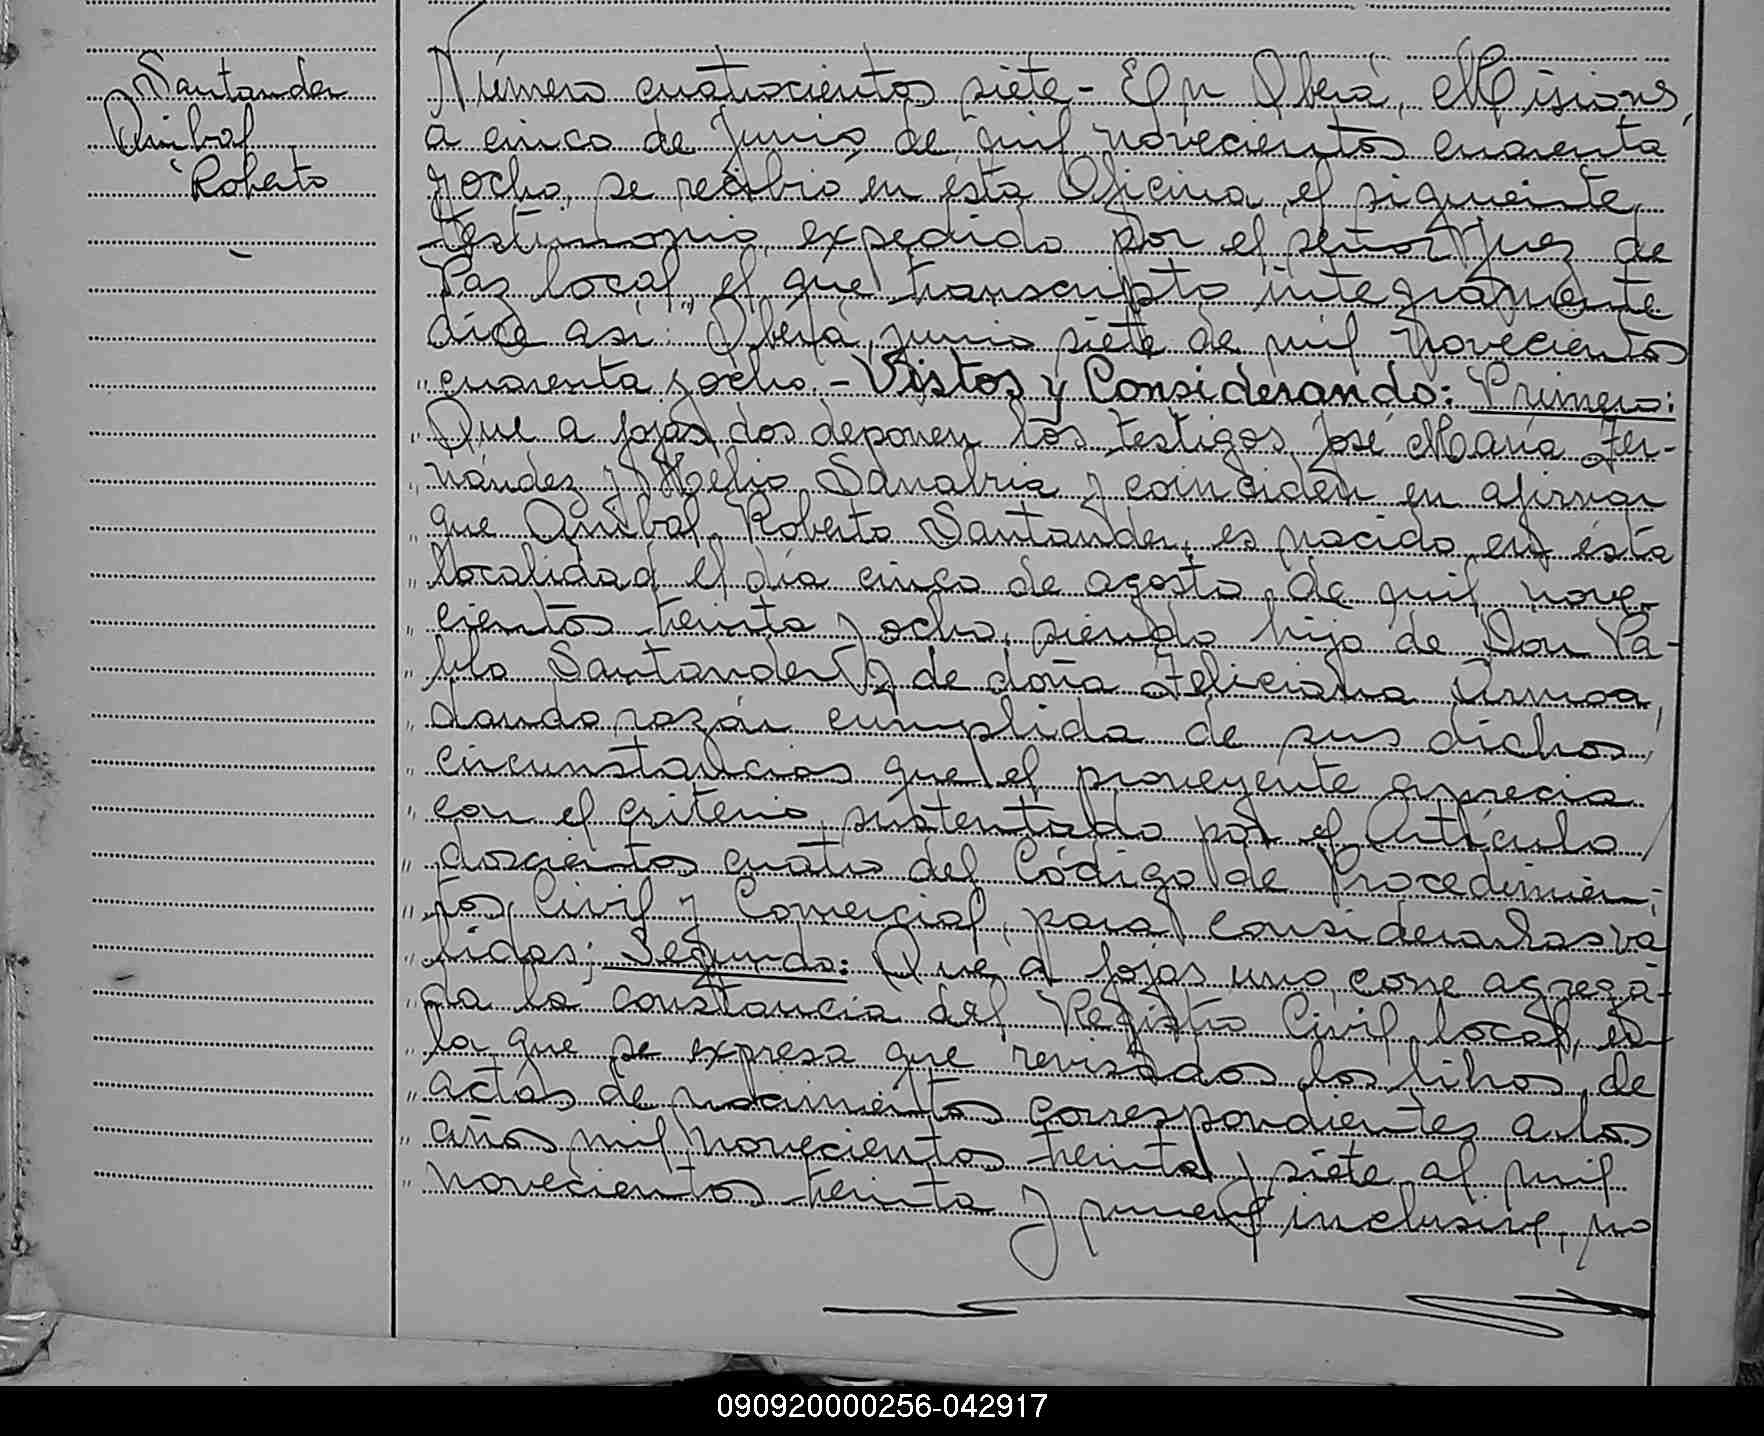 Santander
Anibal
Roberto
Número cuatrocientos siete - En Oberá, Misiones,
a cinco de Junio de mil novecientos cuarenta
y ocho, se recibió en ésta Oficina, el siguiente
testimonio, expedido por el señor Juez de
Paz local, el que transcripto integramente
dice así: "Oberá, junio siete de mil novecientos
"cuarenta y ocho. - Vistos y Considerando: Primero:
"Que a fojas dos deponen los testigos José María Fer-
"nández y Helio Sanabria y coinciden en afirmar
"que Anibal Roberto Santander, es nacido en ésta
"localidad el día cinco de agosto de mil nove-
"cientos treinta y ocho, siendo hijo de Don Pa-
"blo Santander y de doña Feliciana Armoa,
"dando razón cumplida de sus dichos,
"circunstancias que el proveyente aprecia
"con el criterio sustentado por el Artículo
"doscientos cuatro del Código de Procedimien-
"tos Civil y Comercial, para considerarlas vá
"lidas; Segundo: Que a fojas uno corre agrega-
"da la constancia del Registro Civil local, en
"la que se expresa que revisados los libros de
"actas de nacimientos correspondientes a los
"años mil novecientos treinta y siete al mil
"novecientos treinta y nueve inclusive, no
090920000256-042917